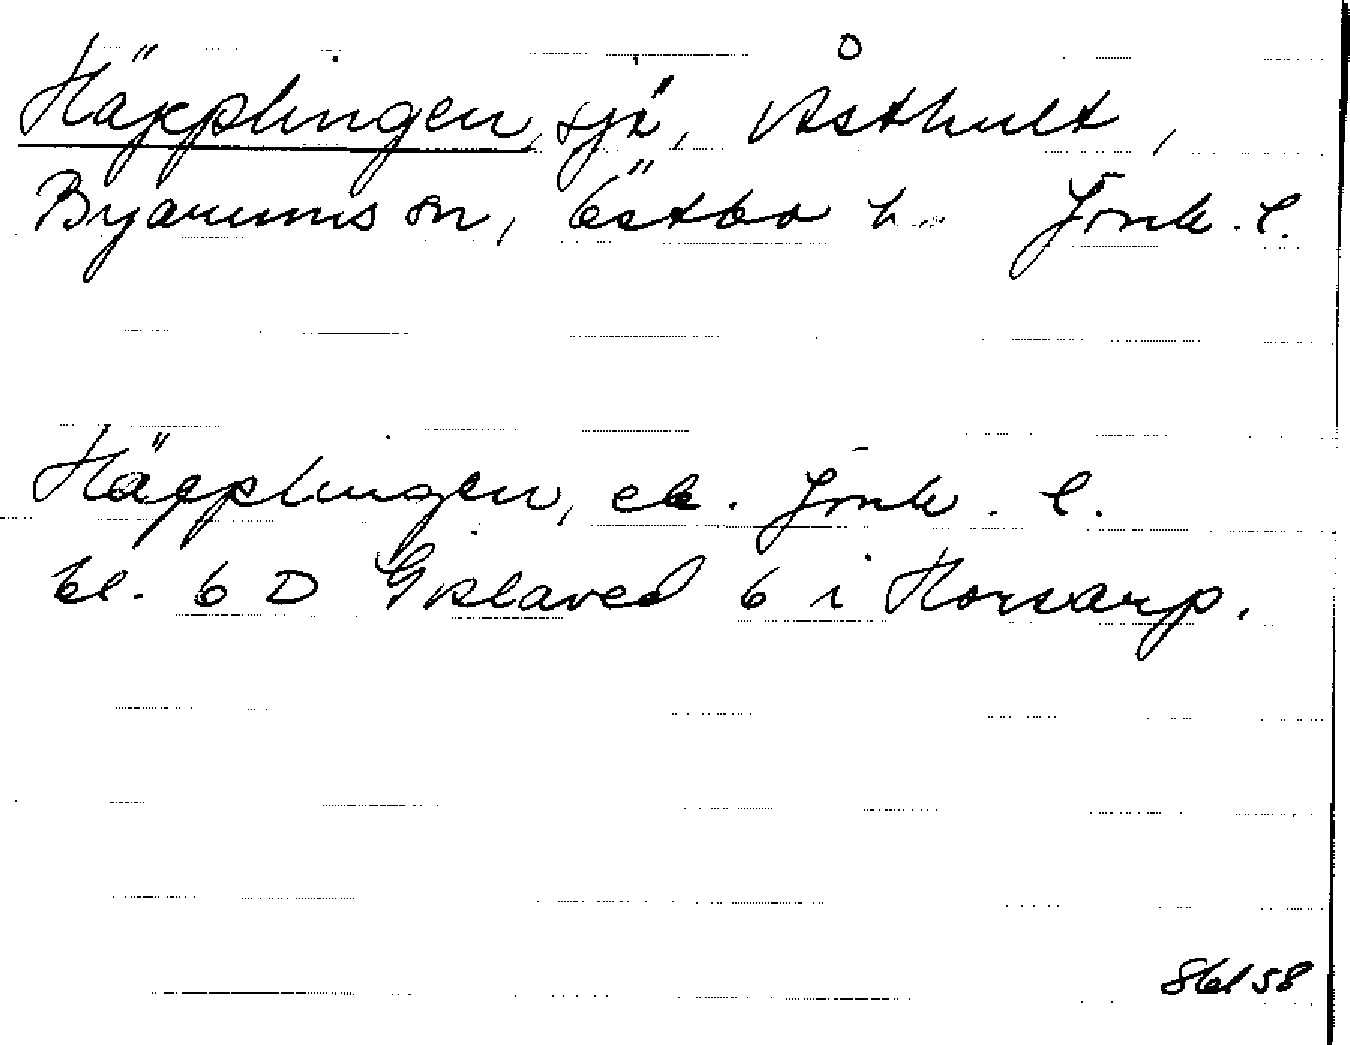 Häpplingen, sjö, Åsthult,
Byarums sn, Östbo h. Jönk. l.
Häpplingen, ek. Jönk. l.
bl. 6 D Gislaved 6 i Horsarp.